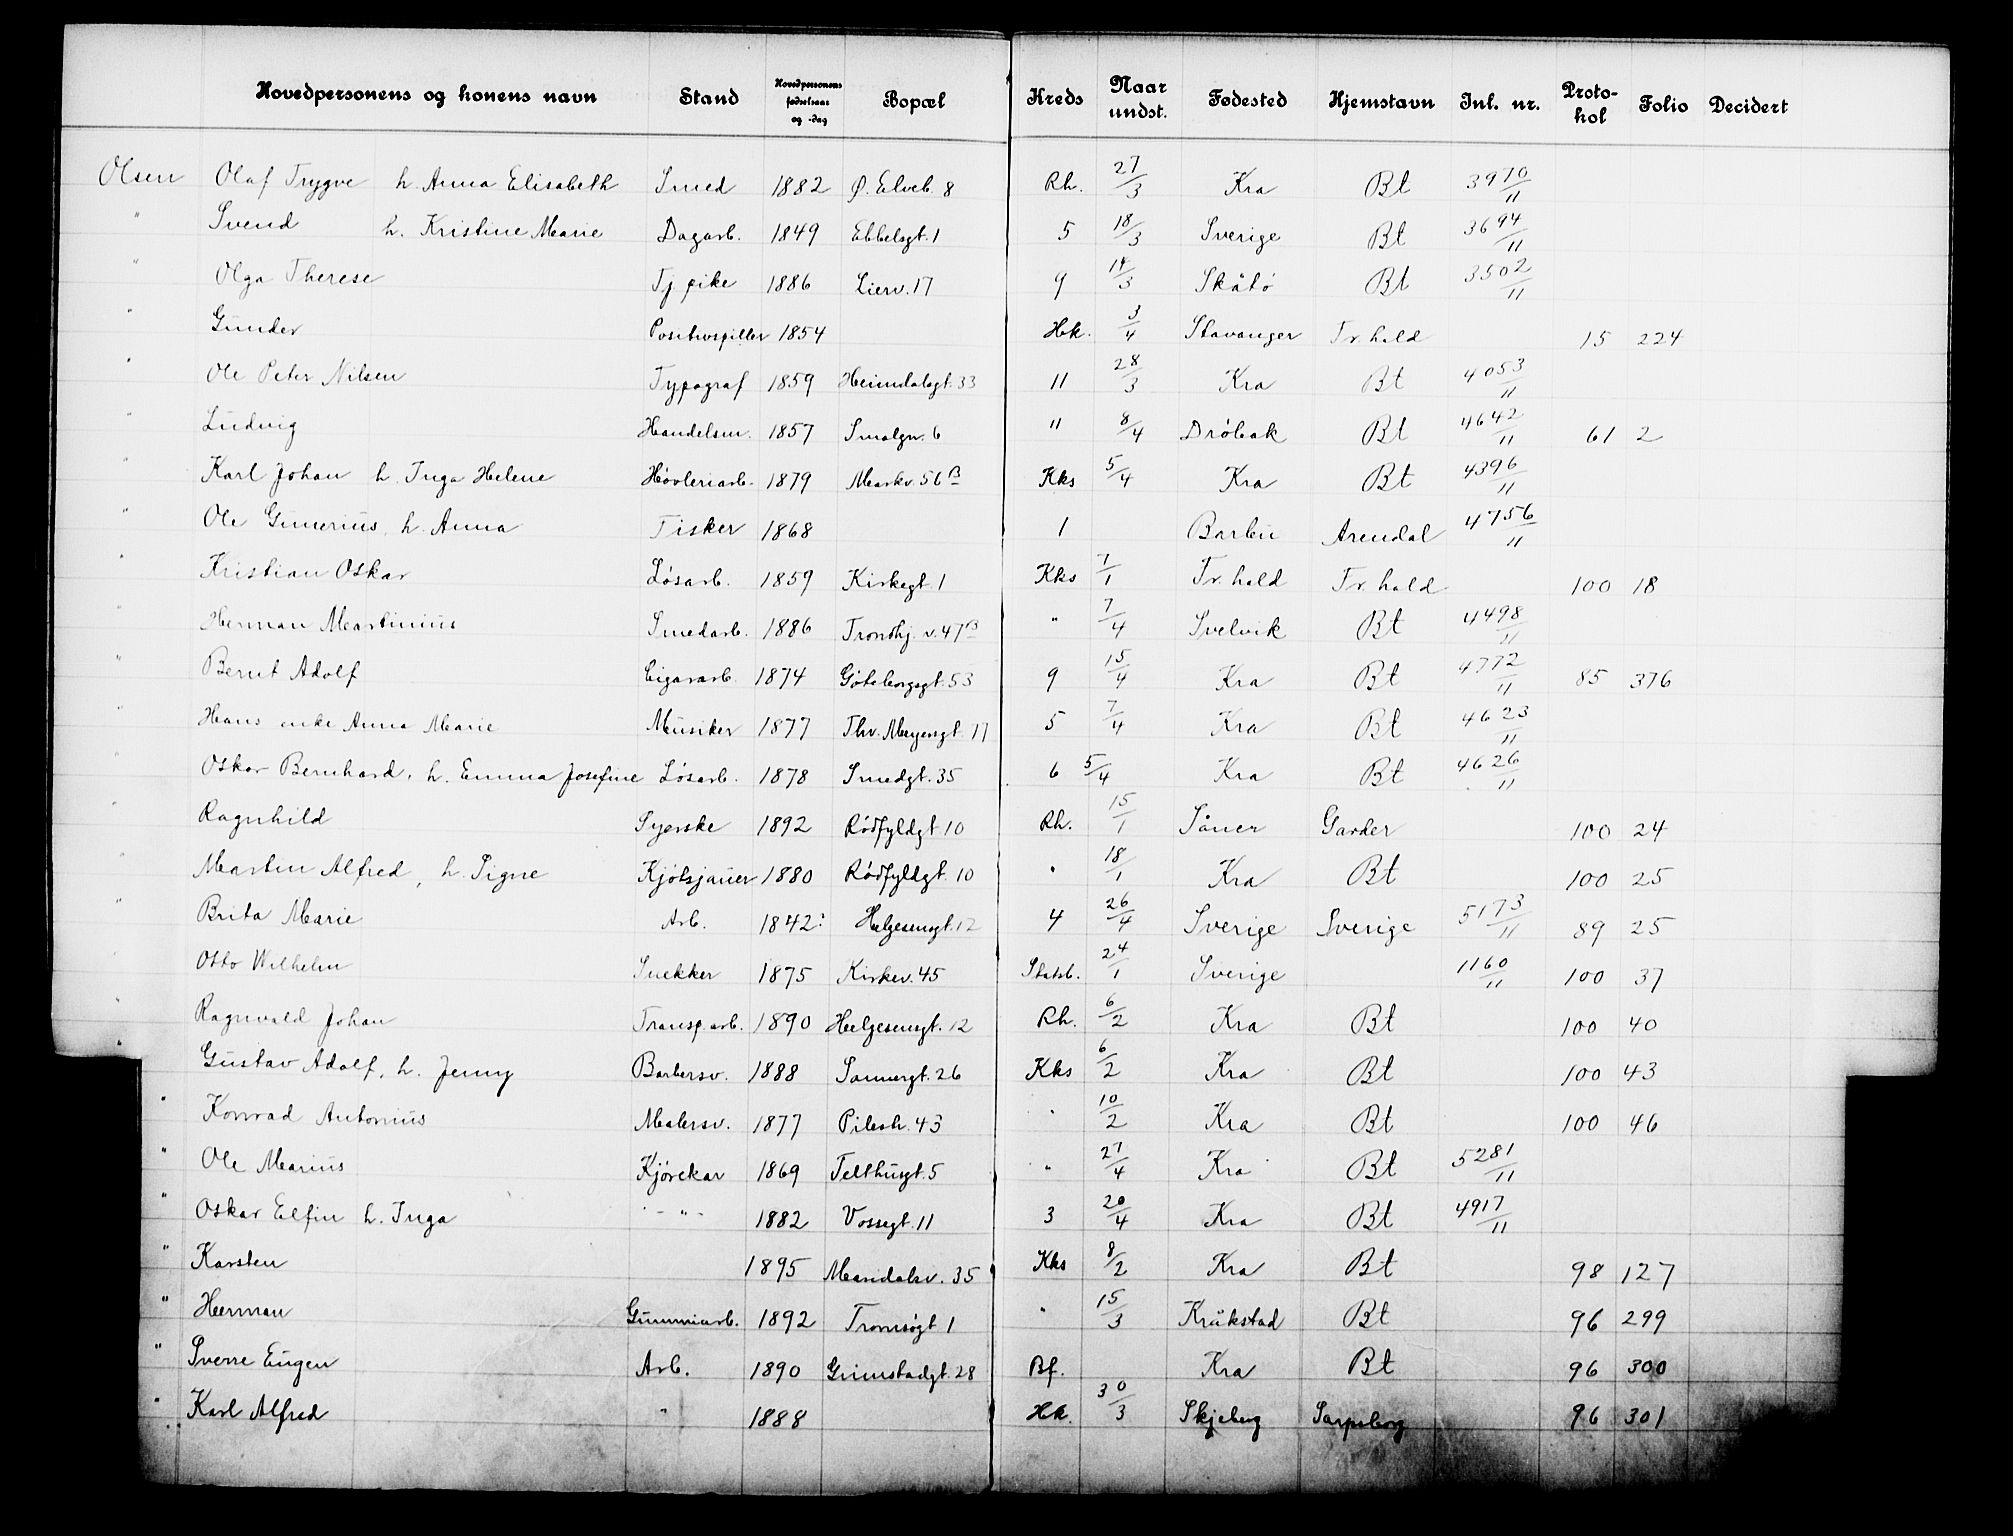 Hovedpersonens og konens navn Stand Hovedpersonens fødselsaar og -dag Bopæl Kreds Naar undst. Fødested Hjemstavn Inl. nr. Protokol Folio Decidert
Olsen Olaf Trygve h. Anna Elisabeth Smed 1882 Ø. Elveb. 8 Rh. 27/3 Kra Bt 3970/11
" Svend h. Kristine Marie Dagarb. 1849 Ebbelsgt. 1 5 18/3 Sverige Bt 3694/11
" Olga Therese Tj. pike 1886 Lierv. 17 9 14/3 Skåtø Bt 3502/11
" Gunder Positivspiller 1854 Hk. 3/4 Stavanger Fr. hald 15 224
" Ole Peter Nilsen Typograf 1859 Heimdalsgt. 33 11 28/3 Kra Bt 4053/11
" Ludvig Handelsm. 1857 Smalgn. 6 " 8/4 Drøbak Bt 4642/11 61 2
" Karl Johan h. Inga Helene Høvleriarb. 1879 Markv. 56 B Kks 5/4 Kra Bt 4396/11
" Ole Gunerius, h. Anna Fisker 1868 1 Barbu Arendal 4756/11
" Kristian Oskar Løsarb. 1859 Kirkegt. 1 Kks 7/1 Fr. hald Fr. hald 100 18
" Herman Martinius Smedarb. 1886 Trondhj. v. 47 B " 7/4 Svelvik Bt 4498/11
" Bernt Adolf Cigararb. 1874 Gøteborgsgt. 53 9 15/4 Kra Bt 4772/11 85 376
" Hans enke Anna Marie Musiker 1877 Thv. Meyersgt. 77 5 7/4 Kra Bt 4623/11
" Oskar Bernhard, h. Emma Josefine Løsarb. 1878 Smedgt. 35 6 5/4 Kra Bt 4626/11
Ragnhild Syerske 1892 Rødfyldgt. 10 Rh. 15/1 Såner Garder 100 24
" Martin Alfred, h. Signe Kjølsjauer 1880 Rødfyldgt. 10 " 18/1 Kra Bt 100 25
" Brita Marie Arb. 1842 Helgesensgt. 12 4 26/4 Sverige Sverige 5173/11 89 25
Otto Wilhelm Snekker 1875 Kirkev. 45 Statsb. 24/1 Sverige 1160/11 100 37
" Ragnvald Johan Transp. arb. 1890 Helgesensgt. 12 Rh. 6/2 Kra Bt 100 40
" Gustav Adolf, h. Jenny Barbersv. 1888 Sannergt. 26 Kks 6/2 Kra Bt 100 43
" Konrad Antonius Malersv. 1877 Pilestr. 43 " 10/2 Kra Bt 100 46
" Ole Marius Kjørekar 1869 Telthusgt. 5 " 27/4 Kra Bt 5281/11
" Oskar Elfin h. Inga - " - 1882 Vossegt. 11 3 20/4 Kra Bt 4917/11
" Karsten 1895 Maridalsv. 35 Kks 8/2 Kra Bt 98 127
" Herman Gummiarb. 1892 Tromsøgt 1 " 15/3 Kråkstad Bt 96 299
" Sverre Eugen Arb. 1890 Grimstadgt. 28 Bf. Kra Bt 96 300
" Karl Alfred " 1888 Hk. 30/3 Skjeberg Sarpsborg 96 301